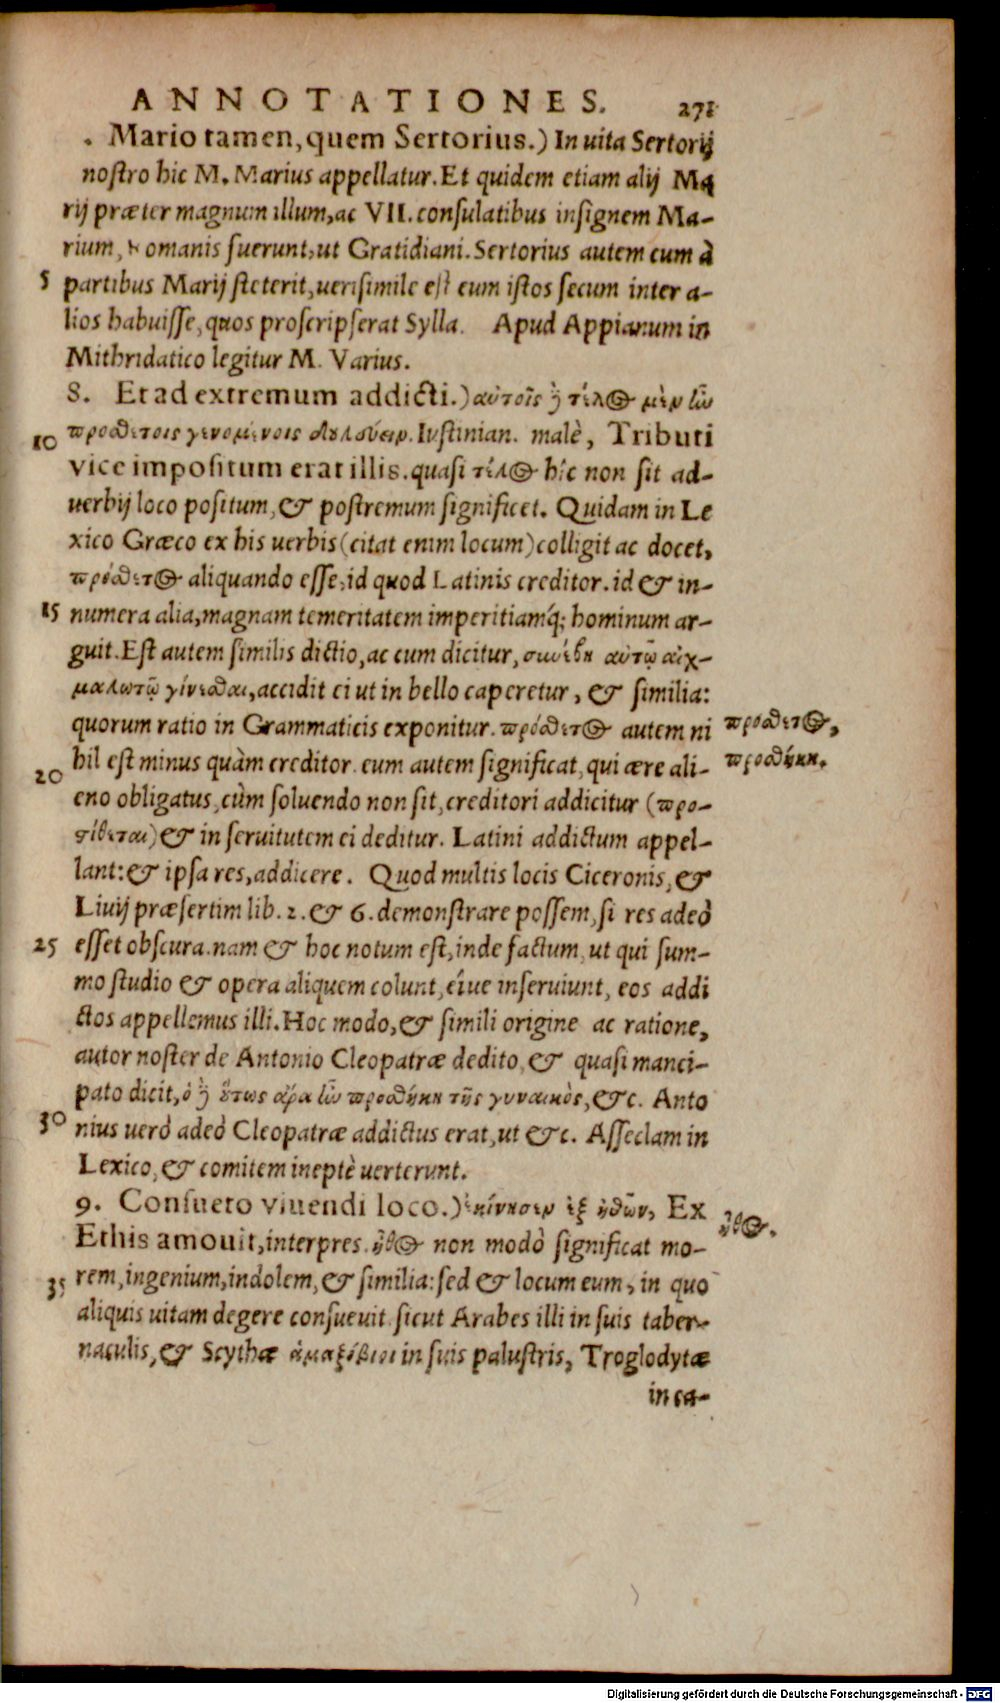 ANNOTATIONES. 271
. Mario tamen, quem Sertorius.) In uita Sertorij
nostro hic M. Marius appellatur. Et quidem etiam alij Ma
rij præter magnum illum, ac VII. consulatibus insignem Ma-
rium, Romanis fuerunt, ut Gratidiani. Sertorius autem cum à
5 partibus Marij steterit, uerisimile est eum istos secum inter a-
lios habuisse, quos proscripserat Sylla. Apud Appianum in
Mithridatico legitur M. Varius.
8. Et ad extremum addicti.) αὐτοῖς ἢ τέλος μὲν ἦν
10 προσθέτοις γενομένοις δουλεύειν. Iustinian. malè, Tributi
vice impositum erat illis. quasi τέλος hîc non sit ad-
uerbij loco positum, & postremum significet. Quidam in Le
xico Græco ex his uerbis (citat enim locum) colligit ac docet,
πρόσθετος aliquando esse, id quod Latinis creditor. id & in-
15 numera alia, magnam temeritatem imperitiamq́; hominum ar-
guit. Est autem similis dictio, ac cum dicitur, συνέβη αὐτῷ αἰχ-
μαλωτῷ γίνεσθαι, accidit ei ut in bello caperetur, & similia:
quorum ratio in Grammaticis exponitur. πρόσθετος autem ni
πρόσθετος,
hil est minus quàm creditor. eum autem significat, qui ære ali-
προσθήκη.
20 eno obligatus, cùm soluendo non sit, creditori addicitur (προσ-
τίθεται) & in seruitutem ei deditur. Latini addictum appel-
lant: & ipsa res, addicere. Quod multis locis Ciceronis, &
Liuij præsertim lib. 2. & 6. demonstrare possem, si res adeò
25 esset obscura. nam & hoc notum est, inde factum, ut qui sum-
mo studio & opera aliquem colunt, eíue inseruiunt, eos addi
ctos appellemus illi. Hoc modo, & simili origine ac ratione,
autor noster de Antonio Cleopatræ dedito, & quasi manci-
pato dicit, ὁ ἢ οὕτως ἄρα ἦν προσθήκη τῆς γυναικὸς, &c. Anto
30 nius uerò adeò Cleopatræ addictus erat, ut &c. Asseclam in
Lexico, & comitem ineptè uerterunt.
9. Consueto viuendi loco.) ἐκίνησεν ἐξ ἠθῶν, Ex
ἦθος.
Ethis amouit, interpres. ἦθος non modò significat mo-
35 rem, ingenium, indolem, & similia: sed & locum eum, in quo
aliquis uitam degere consueuit. sicut Arabes illi in suis taber-
naculis, & Scythæ ἁμαξόβιοι in suis palustris, Troglodytæ
in ca-
Digitalisierung gefördert durch die Deutsche Forschungsgemeinschaft - DFG